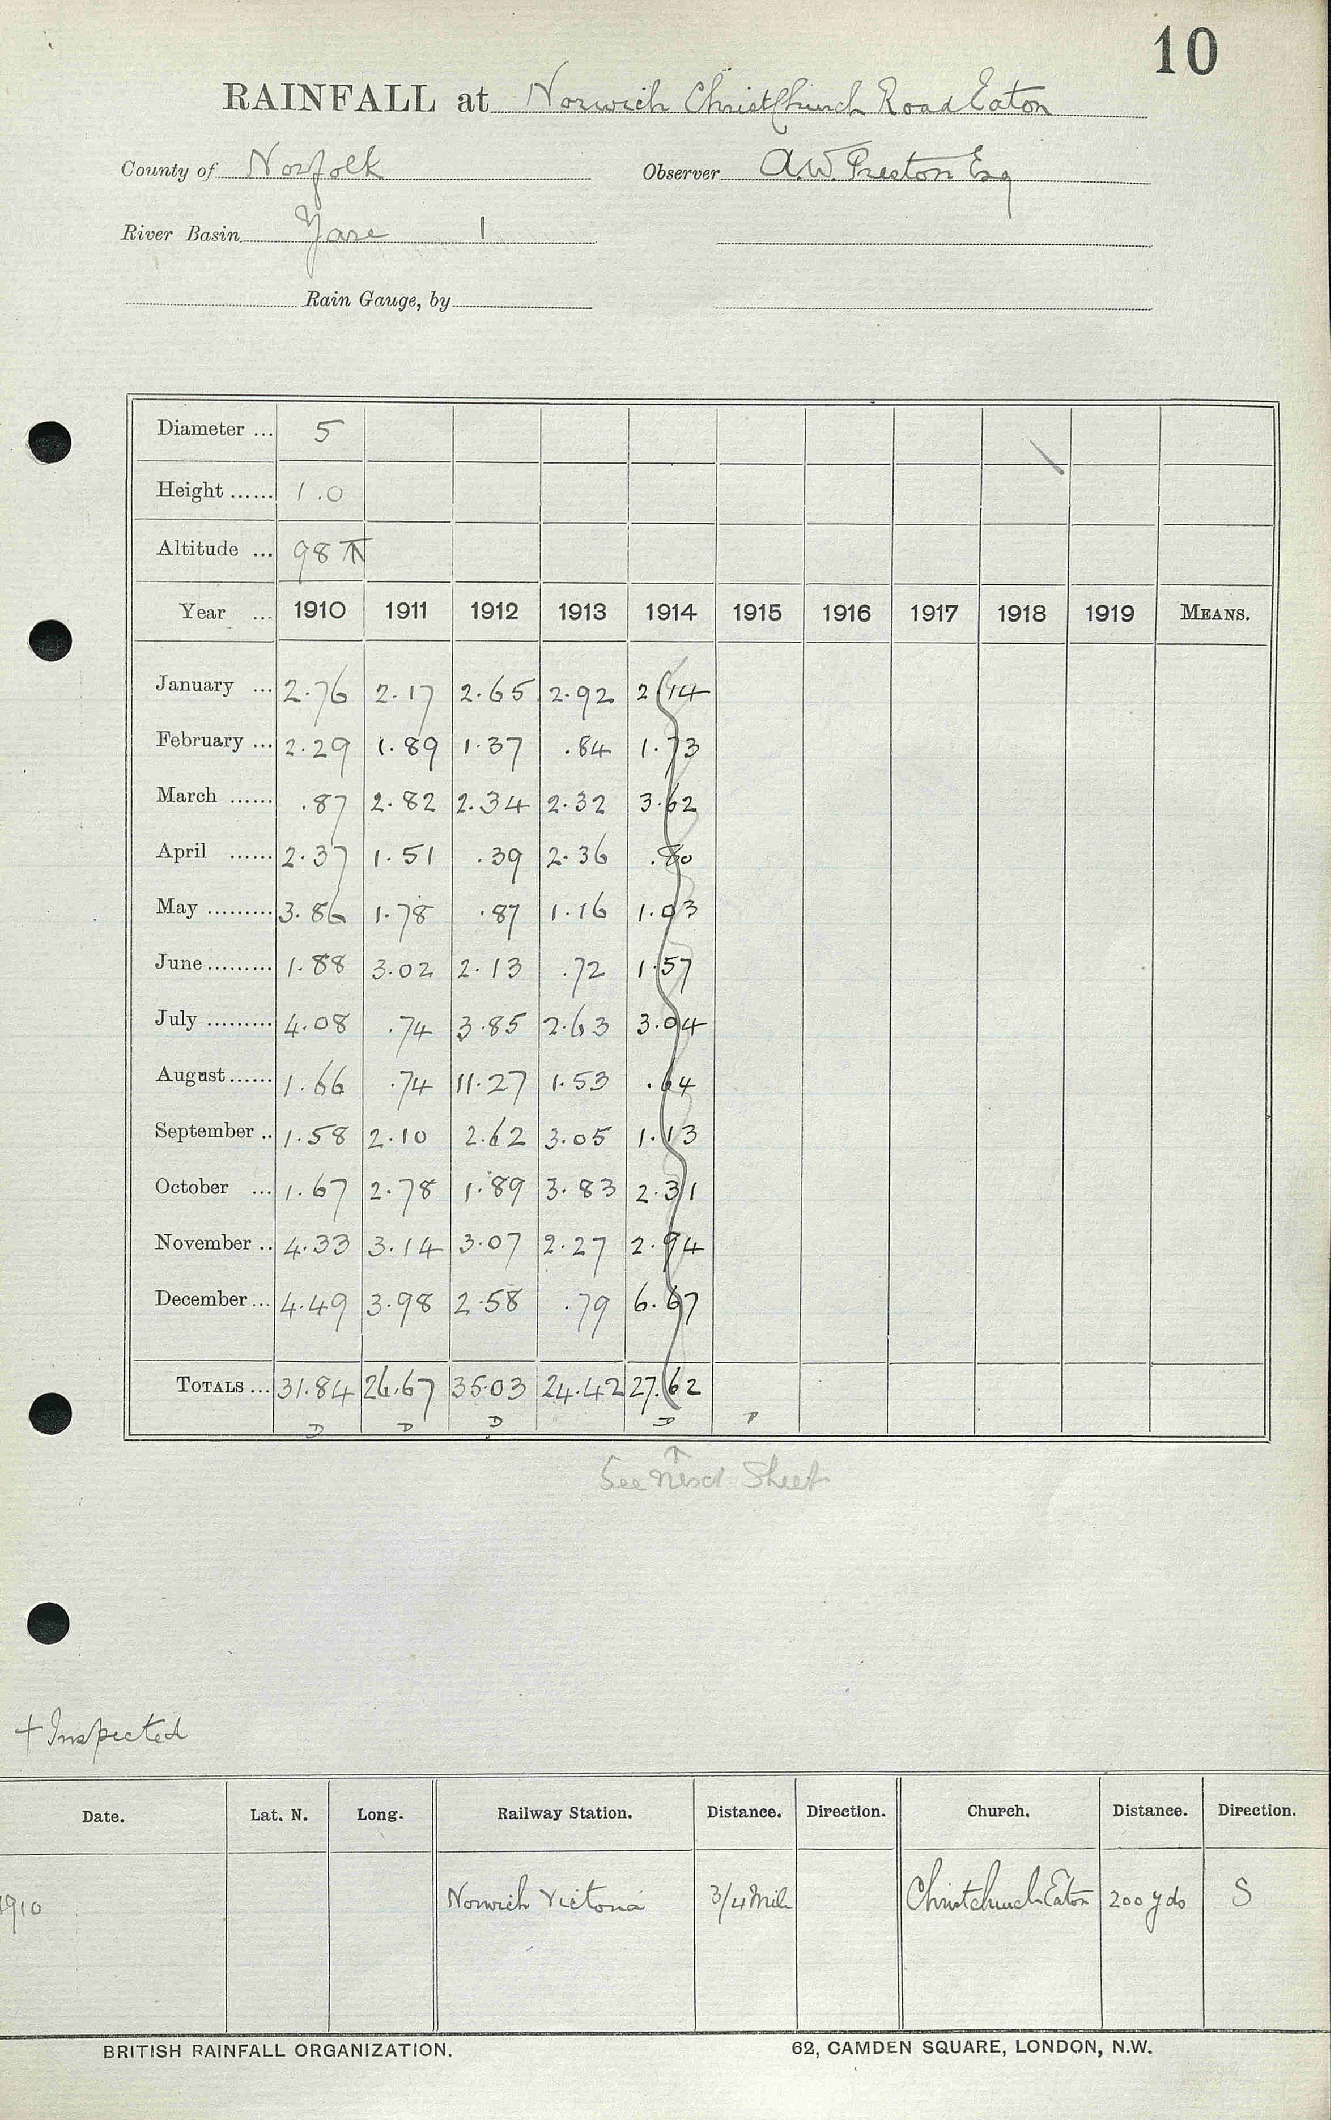 10
RAINFALL at Norwich ChristChurch Road Eaton
County of Norfolk Observer A.W. Preston Esq
River Basin Yare 1
Rain Gauge, by
Diameter ... 5
Height ...... 1.0
Altitude ... 98
Year ... 1910 1911 1912 1913 1914 1915 1916 1917 1918 1919 MEANS.
January ... 2.76 2.17 2.65 2.92 2.14
February ... 2.29 1.89 1.37 .84 1.73
March ...... .87 2.82 2.34 2.32 3.62
April ...... 2.37 1.51 .39 2.36 .80
May ......... 3.86 1.78 .87 1.16 1.03
June ......... 1.88 3.02 2.13 .72 1.57
July ......... 4.08 .74 3.85 2.63 3.04
August ...... 1.66 .74 11.27 1.53 .64
September .. 1.58 2.10 2.62 3.05 1.13
October ... 1.67 2.78 1.89 3.83 2.31
November .. 4.33 3.14 3.07 2.27 2.94
December ... 4.49 3.98 2.58 .79 6.67
TOTALS ... 31.84 26.67 35.03 24.42 27.62
D D D D
See next Sheet
+ Inspected
Date. Lat. N. Long. Railway Station. Distance. Direction. Church. Distance. Direction.
1910 Norwich Victoria 3/4 Mile Christchurch Eaton 200 yds S
BRITISH RAINFALL ORGANIZATION. 62, CAMDEN SQUARE, LONDON, N.W.